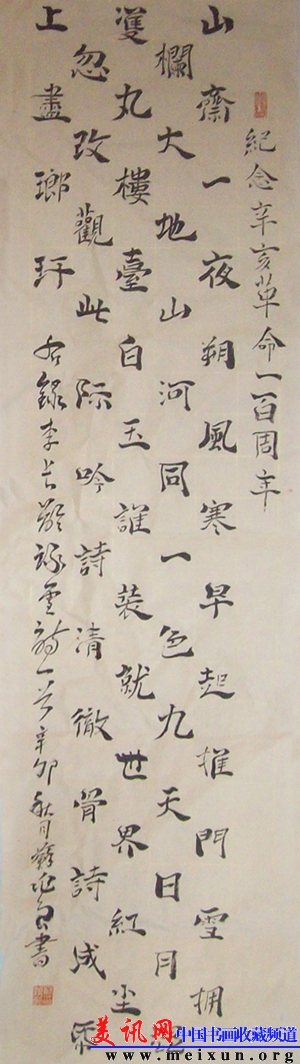 紀念辛亥革命一百周年
山齋一夜朔風寒早起推門雪擁
欄大地山河同一色九天日月
雙丸樓臺白玉誰裝就世界紅尘
忽改觀此际吟詩清徹骨詩成
上盡瑯玕 右錄李长龄詠雪詩一首 辛卯 秋月 書
美讯网 中国书画收藏频道
www.meixun.org.